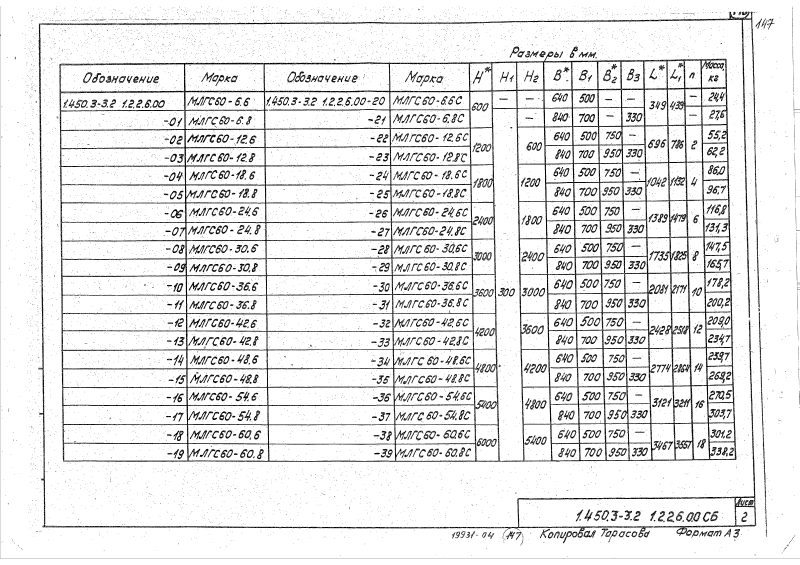 147
Размеры в мм.
Обозначение Марка Обозначение Марка H* H1 H2 B* B1 B2* B3 L* L1* n Масса, кг
1.450.3-3.2 1.2.2.6.00 МЛГС60-6.6 1.450.3-3.2 1.2.2.6.00-20 МЛГС60-6.6С 600 — — 640 500 — — 349 439 — 24,4
-01 МЛГС60-6.8 -21 МЛГС60-6.8С 840 700 — 330 27,6
-02 МЛГС60-12.6 -22 МЛГС60-12.6С 1200 300 600 640 500 750 — 696 786 2 55,2
-03 МЛГС60-12.8 -23 МЛГС60-12.8С 840 700 950 330 62,2
-04 МЛГС60-18.6 -24 МЛГС60-18.6С 1800 1200 640 500 750 — 1042 1132 4 86,0
-05 МЛГС60-18.8 -25 МЛГС60-18.8С 840 700 950 330 96,7
-06 МЛГС60-24.6 -26 МЛГС60-24.6С 2400 1800 640 500 750 — 1389 1479 6 116,8
-07 МЛГС60-24.8 -27 МЛГС60-24.8С 840 700 950 330 131,3
-08 МЛГС60-30.6 -28 МЛГС60-30.6С 3000 2400 640 500 750 — 1735 1825 8 147,5
-09 МЛГС60-30.8 -29 МЛГС60-30.8С 840 700 950 330 165,7
-10 МЛГС60-36.6 -30 МЛГС60-36.6С 3600 3000 640 500 750 — 2081 2171 10 178,2
-11 МЛГС60-36.8 -31 МЛГС60-36.8С 840 700 950 330 200,2
-12 МЛГС60-42.6 -32 МЛГС60-42.6С 4200 3600 640 500 750 — 2428 2518 12 209,0
-13 МЛГС60-42.8 -33 МЛГС60-42.8С 840 700 950 330 234,7
-14 МЛГС60-48.6 -34 МЛГС60-48.6С 4800 4200 640 500 750 — 2774 2864 14 239,7
-15 МЛГС60-48.8 -35 МЛГС60-48.8С 840 700 950 330 269,2
-16 МЛГС60-54.6 -36 МЛГС60-54.6С 5400 4800 640 500 750 — 3121 3211 16 270,5
-17 МЛГС60-54.8 -37 МЛГС60-54.8С 840 700 950 330 303,7
-18 МЛГС60-60.6 -38 МЛГС60-60.6С 6000 5400 640 500 750 — 3467 3557 18 301,2
-19 МЛГС60-60.8 -39 МЛГС60-60.8С 840 700 950 330 338,2
1.450.3-3.2 1.2.2.6.00 СБ
Лист
2
19931-04 (147) Копировал Тарасова Формат А3